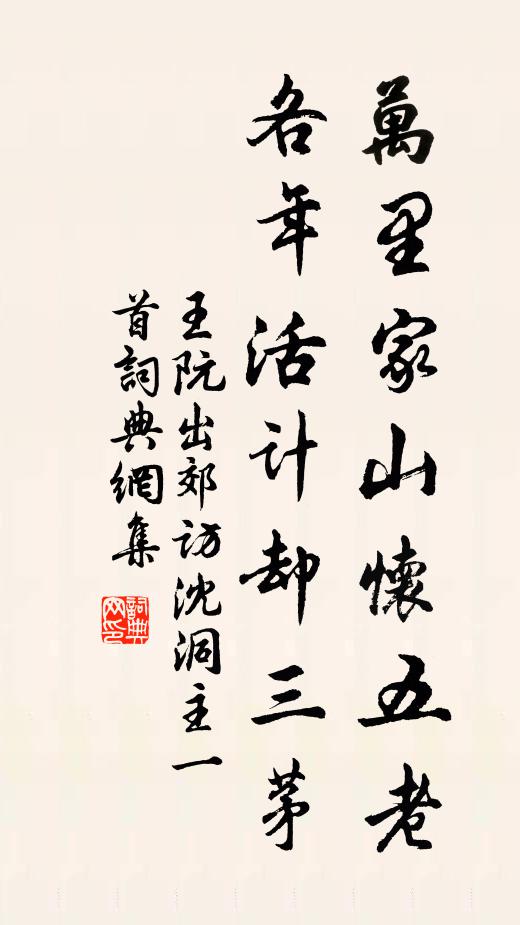 萬里家山懷五老
各年活計却三茅
王阮出郊訪沈洞主一
首詞典網集
詞典网印